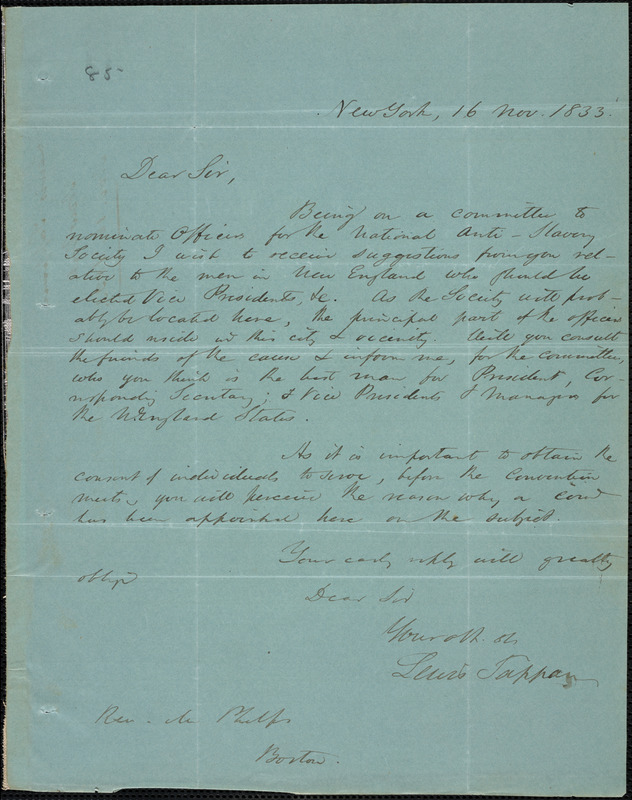 85
New York, 16 Nov. 1833.
Dear Sir,
Being on a committee to
nominate Officers for the National Anti-Slavery
Society I wish to receive suggestions from you rel-
ative to the men in New England who should be
elected Vice Presidents, &c. As the Society will prob-
ably be located here, the principal part of the officers
should reside in this city & vicinity. Will you consult
the friends of the cause & inform me, for the committee,
who you think is the best man for President, Cor-
respondg Secretary; & Vice Presidents & Managers for
the N. England States.
As it is important to obtain the
consent of individuals to serve, before the Convention
meets, you will perceive the reason why a
has been appointed here on the subject.
Your early reply will greatly
oblige
Dear Sir
Your
Lewis Tappan
Rev. Mr Phelps
Boston.